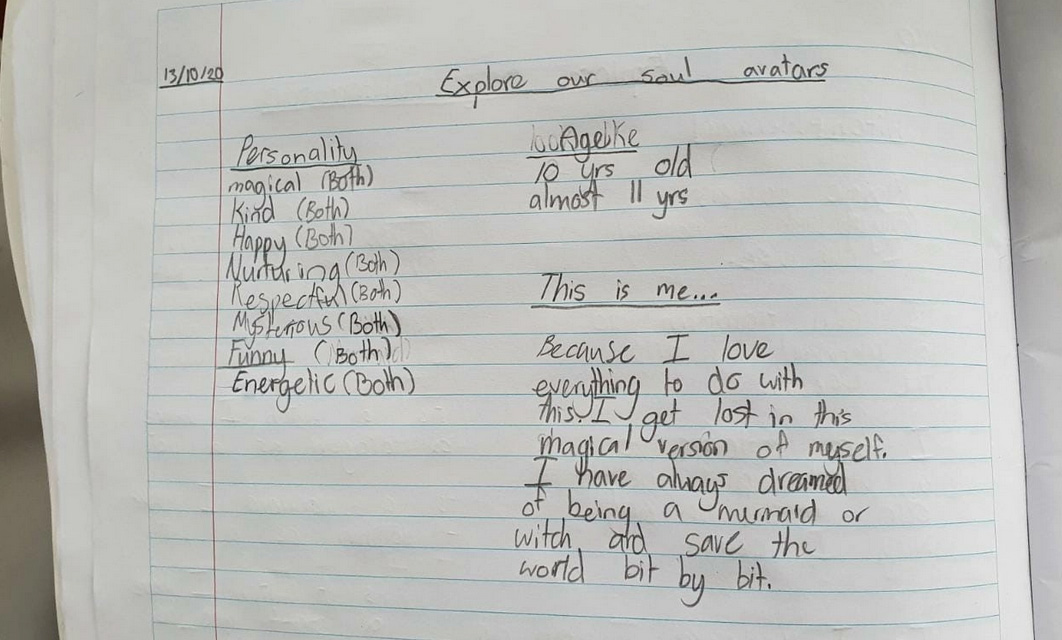 13/10/20
Explore our soul avatars
Personality
magical (Both)
Kind (Both)
Happy (Both)
Nurturing (Both)
Respectful (Both)
Mysterious (Both)
Funny (Both)
Energetic (Both)
Age
10 yrs old
almost 11 yrs
This is me...
Because I love
everything to do with
this. I get lost in this
magical version of myself.
I have always dreamed
of being a mermaid or
witch and save the
world bit by bit.